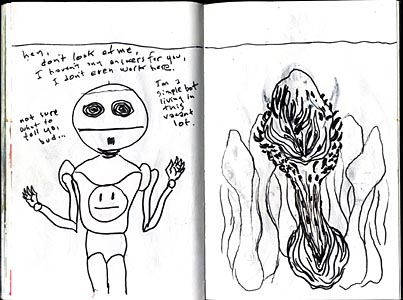 hey,
don't look at me,
I haven't any answers for you,
I don't even work here.
I'm a
simple bot
living in
this
vacant
lot.
not sure
what to
tell you,
bud...